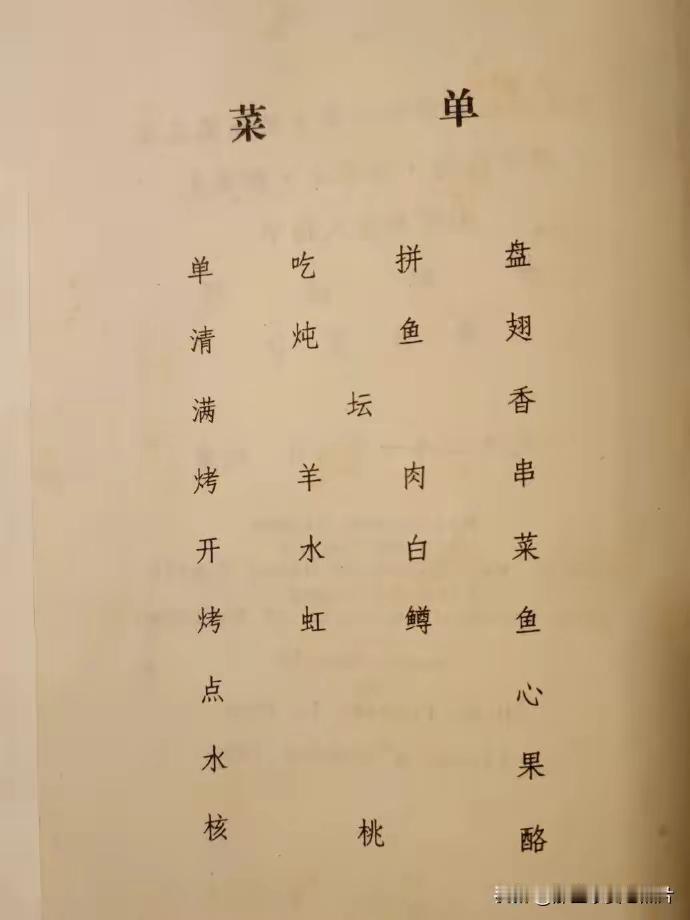 菜单
单吃拼盘
清炖鱼翅
满坛香
烤羊肉串
开水白菜
烤虹鳟鱼
点心
水果
核桃酪